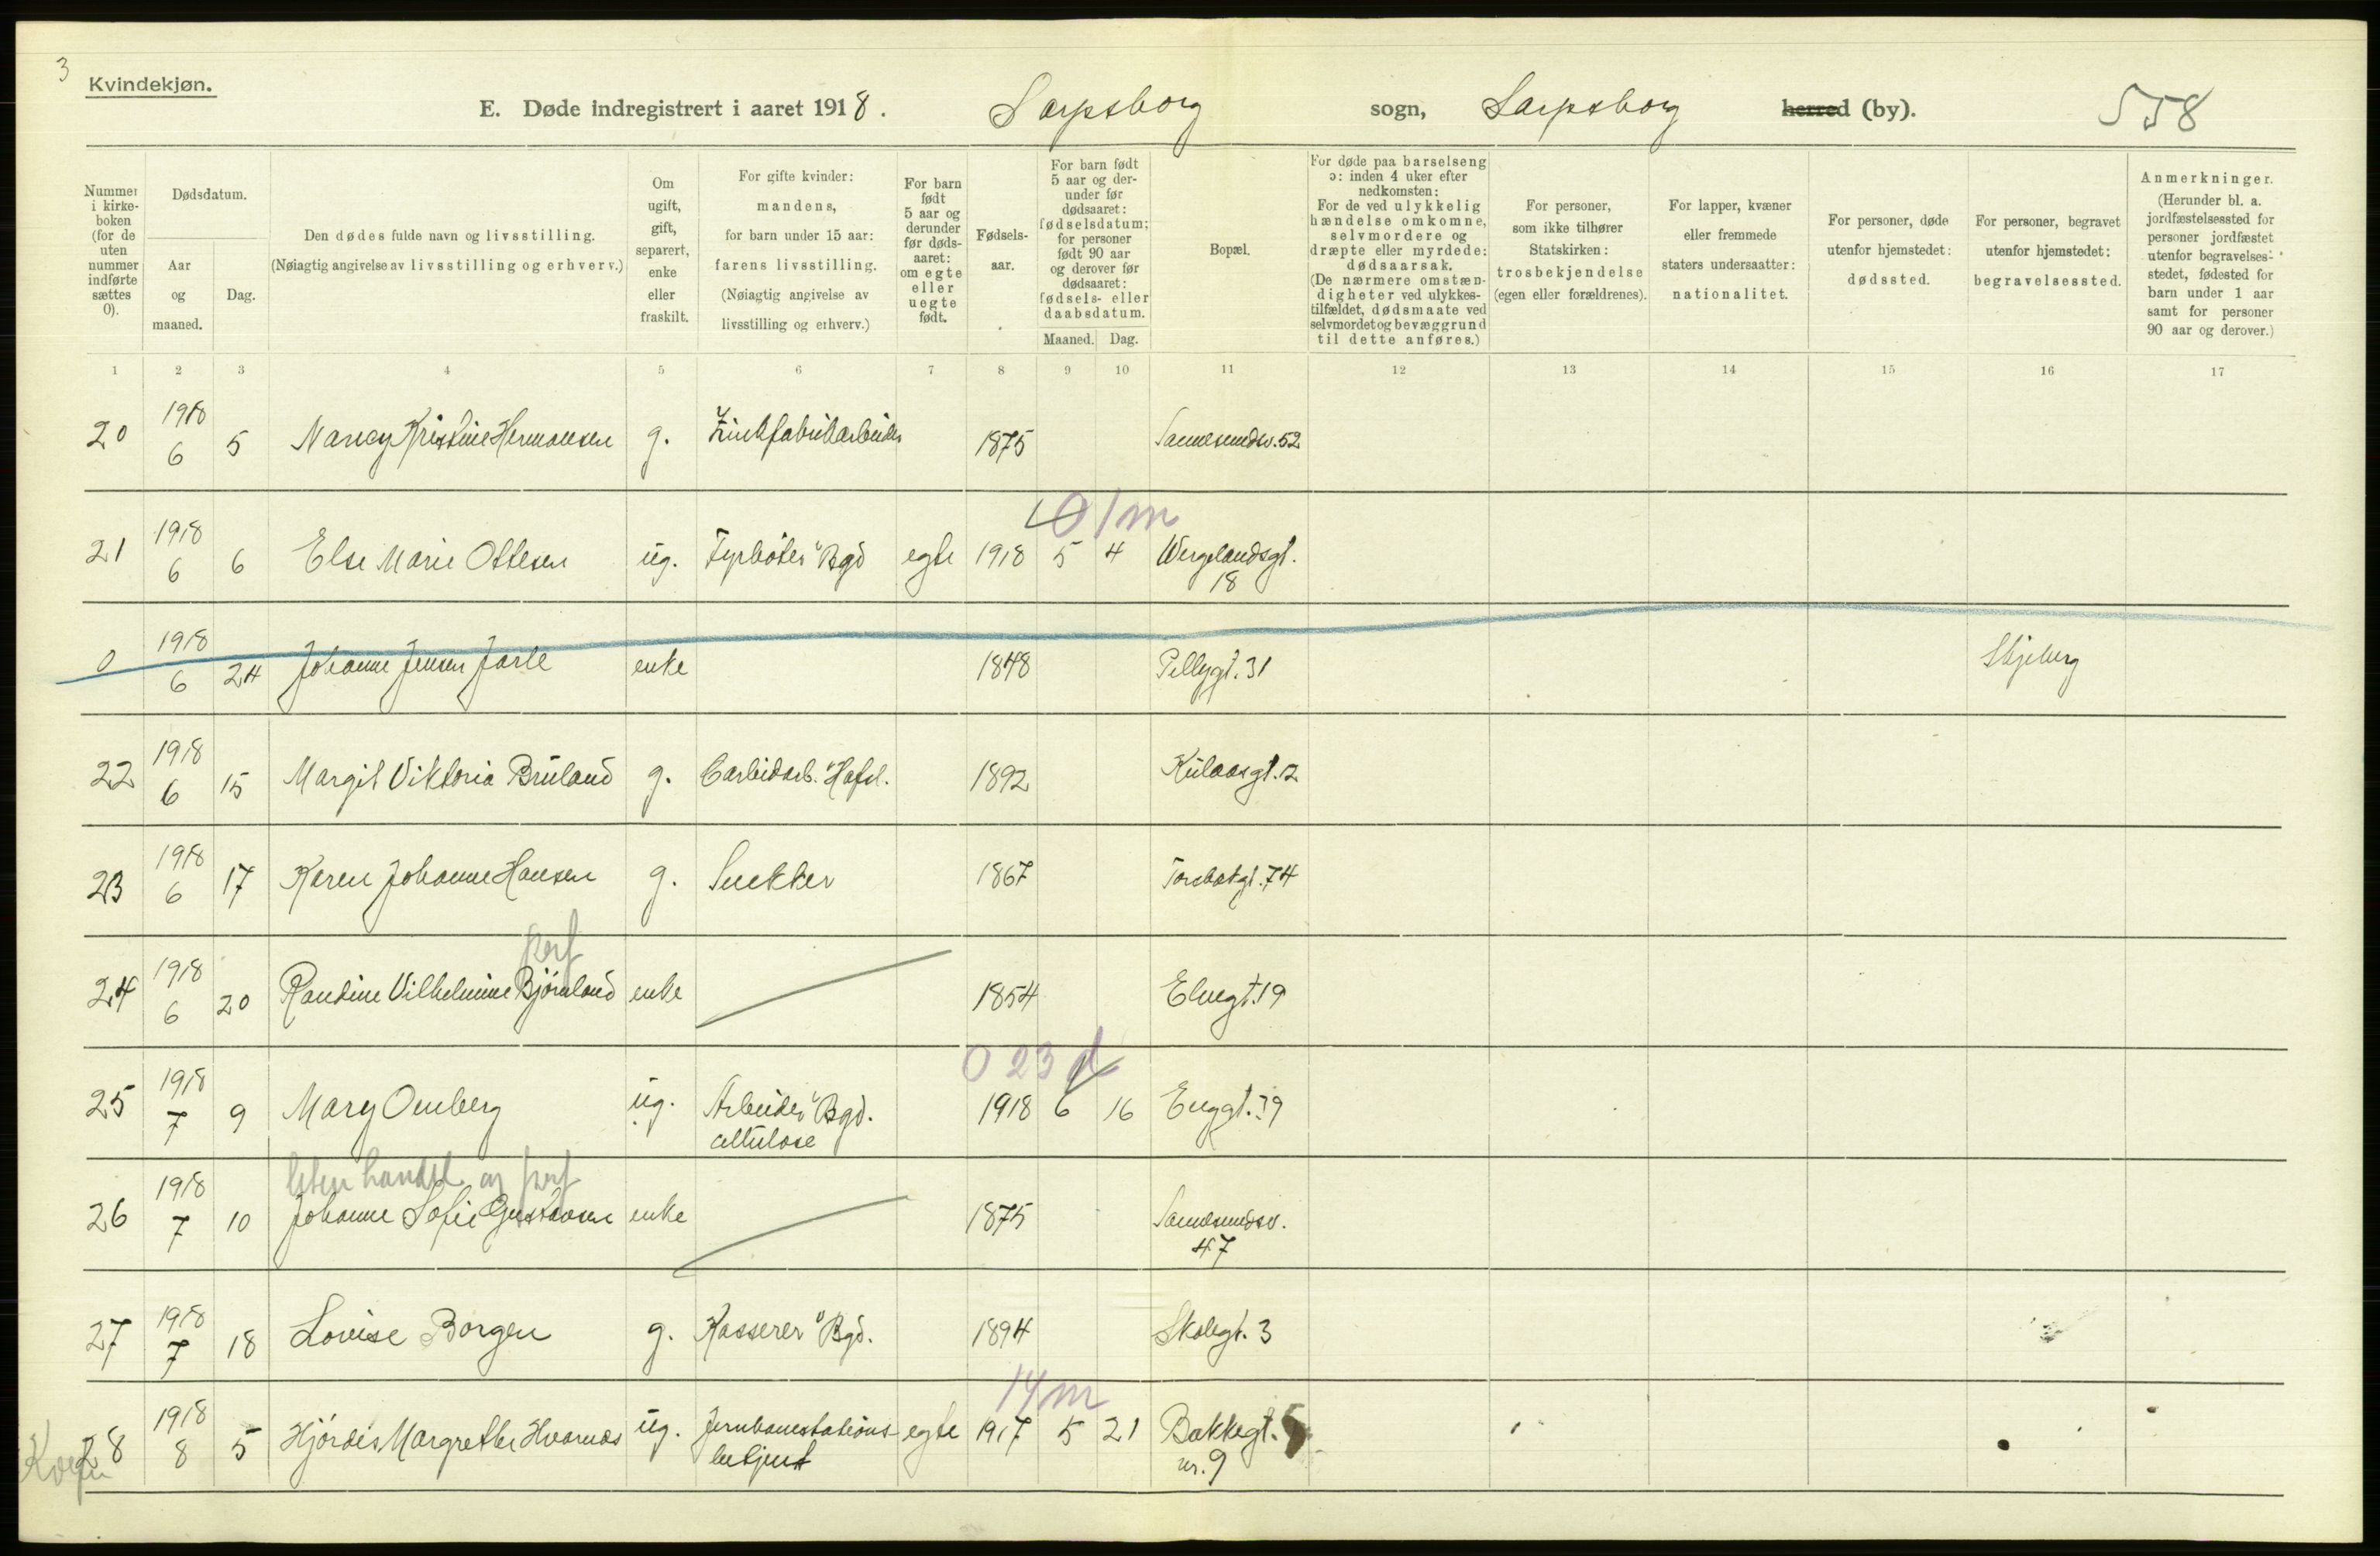 3
Kvindekjøn.
E. Døde indregistrert i aaret 1918. Sarpsborg sogn, Sarpsborg herred (by). 558
Nummer i kirke-boken (for de uten nummer indførte sættes 0).
Dødsdatum.
Aar og maaned.
Dag.
Den dødes fulde navn og livsstilling.
(Nøiagtig angivelse av livsstilling og erhverv.)
Om ugift, gift, separert, enke eller fraskilt.
For gifte kvinder: mandens, for barn under 15 aar: farens livsstilling. (Nøiagtig angivelse av livsstilling og erhverv.)
For barn født 5 aar og derunder før døds-aaret: om egte eller uegte født.
Fødsels-aar.
For barn født 5 aar og der-under før dødsaaret: fødselsdatum; for personer født 90 aar og derover før dødsaaret: fødsels- eller daabsdatum.
Maaned. Dag.
Bopæl.
For døde paa barselseng ɔ: inden 4 uker efter nedkomsten: For de ved ulykkelig hændelse omkomne, selvmordere og dræpte eller myrdede: dødsaarsak. (De nærmere omstæn-digheter ved ulykkes-tilfældet, dødsmaate ved selvmordet og bevæggrund til dette anføres.)
For personer, som ikke tilhører Statskirken: trosbekjendelse (egen eller forældrenes).
For lapper, kvæner eller fremmede staters undersaatter: nationalitet.
For personer, døde utenfor hjemstedet: dødssted.
For personer, begravet utenfor hjemstedet: begravelsessted.
Anmerkninger. (Herunder bl. a. jordfæstelsessted for personer jordfæstet utenfor begravelses-stedet, fødested for barn under 1 aar samt for personer 90 aar og derover.)
1 2 3 4 5 6 7 8 9 10 11 12 13 14 15 16 17
20 1918 6 5 Nancy Kristine Hermansen g. Zinkfabrikarbeider 1875 Sannesundsv. 52
0 1 m
21 1918 6 6 Else Marie Ottesen ug. Fyrbøter Bgd egte 1918 5 4 Wergelandsgt. 18
0 1918 6 24 Johanne Jensen Jarle enke 1848 Pellygt. 31 Skjeberg
22 1918 6 15 Margit Viktoria Bruland g. Carbidarb. Hafsl. 1892 Kulaasgt. 2
23 1918 6 17 Karen Johanne Hansen g. Snekker 1867 Torsbekgt. 74
24 1918 6 20 Randine Vilhelmine Bjørnland enke 1854 Elvegt. 19
0 23 d
25 1918 7 9 Mary Omberg ug. Arbeider Bgd. cellulose 1918 6 16 Enggt. 39
liten handel og
26 1918 7 10 Johanne Sofie Gustavsen enke 1875 Sannesundsv. 47
27 1918 7 18 Lovise Borgen g. Kasserer Bgd. 1894 Skolegt. 3
14 m
28 1918 8 5 Hjørdis Margrethe Hvarnæs ug. Jernbanestations-betjent egte 1917 5 21 Bakkegt. nr. 9